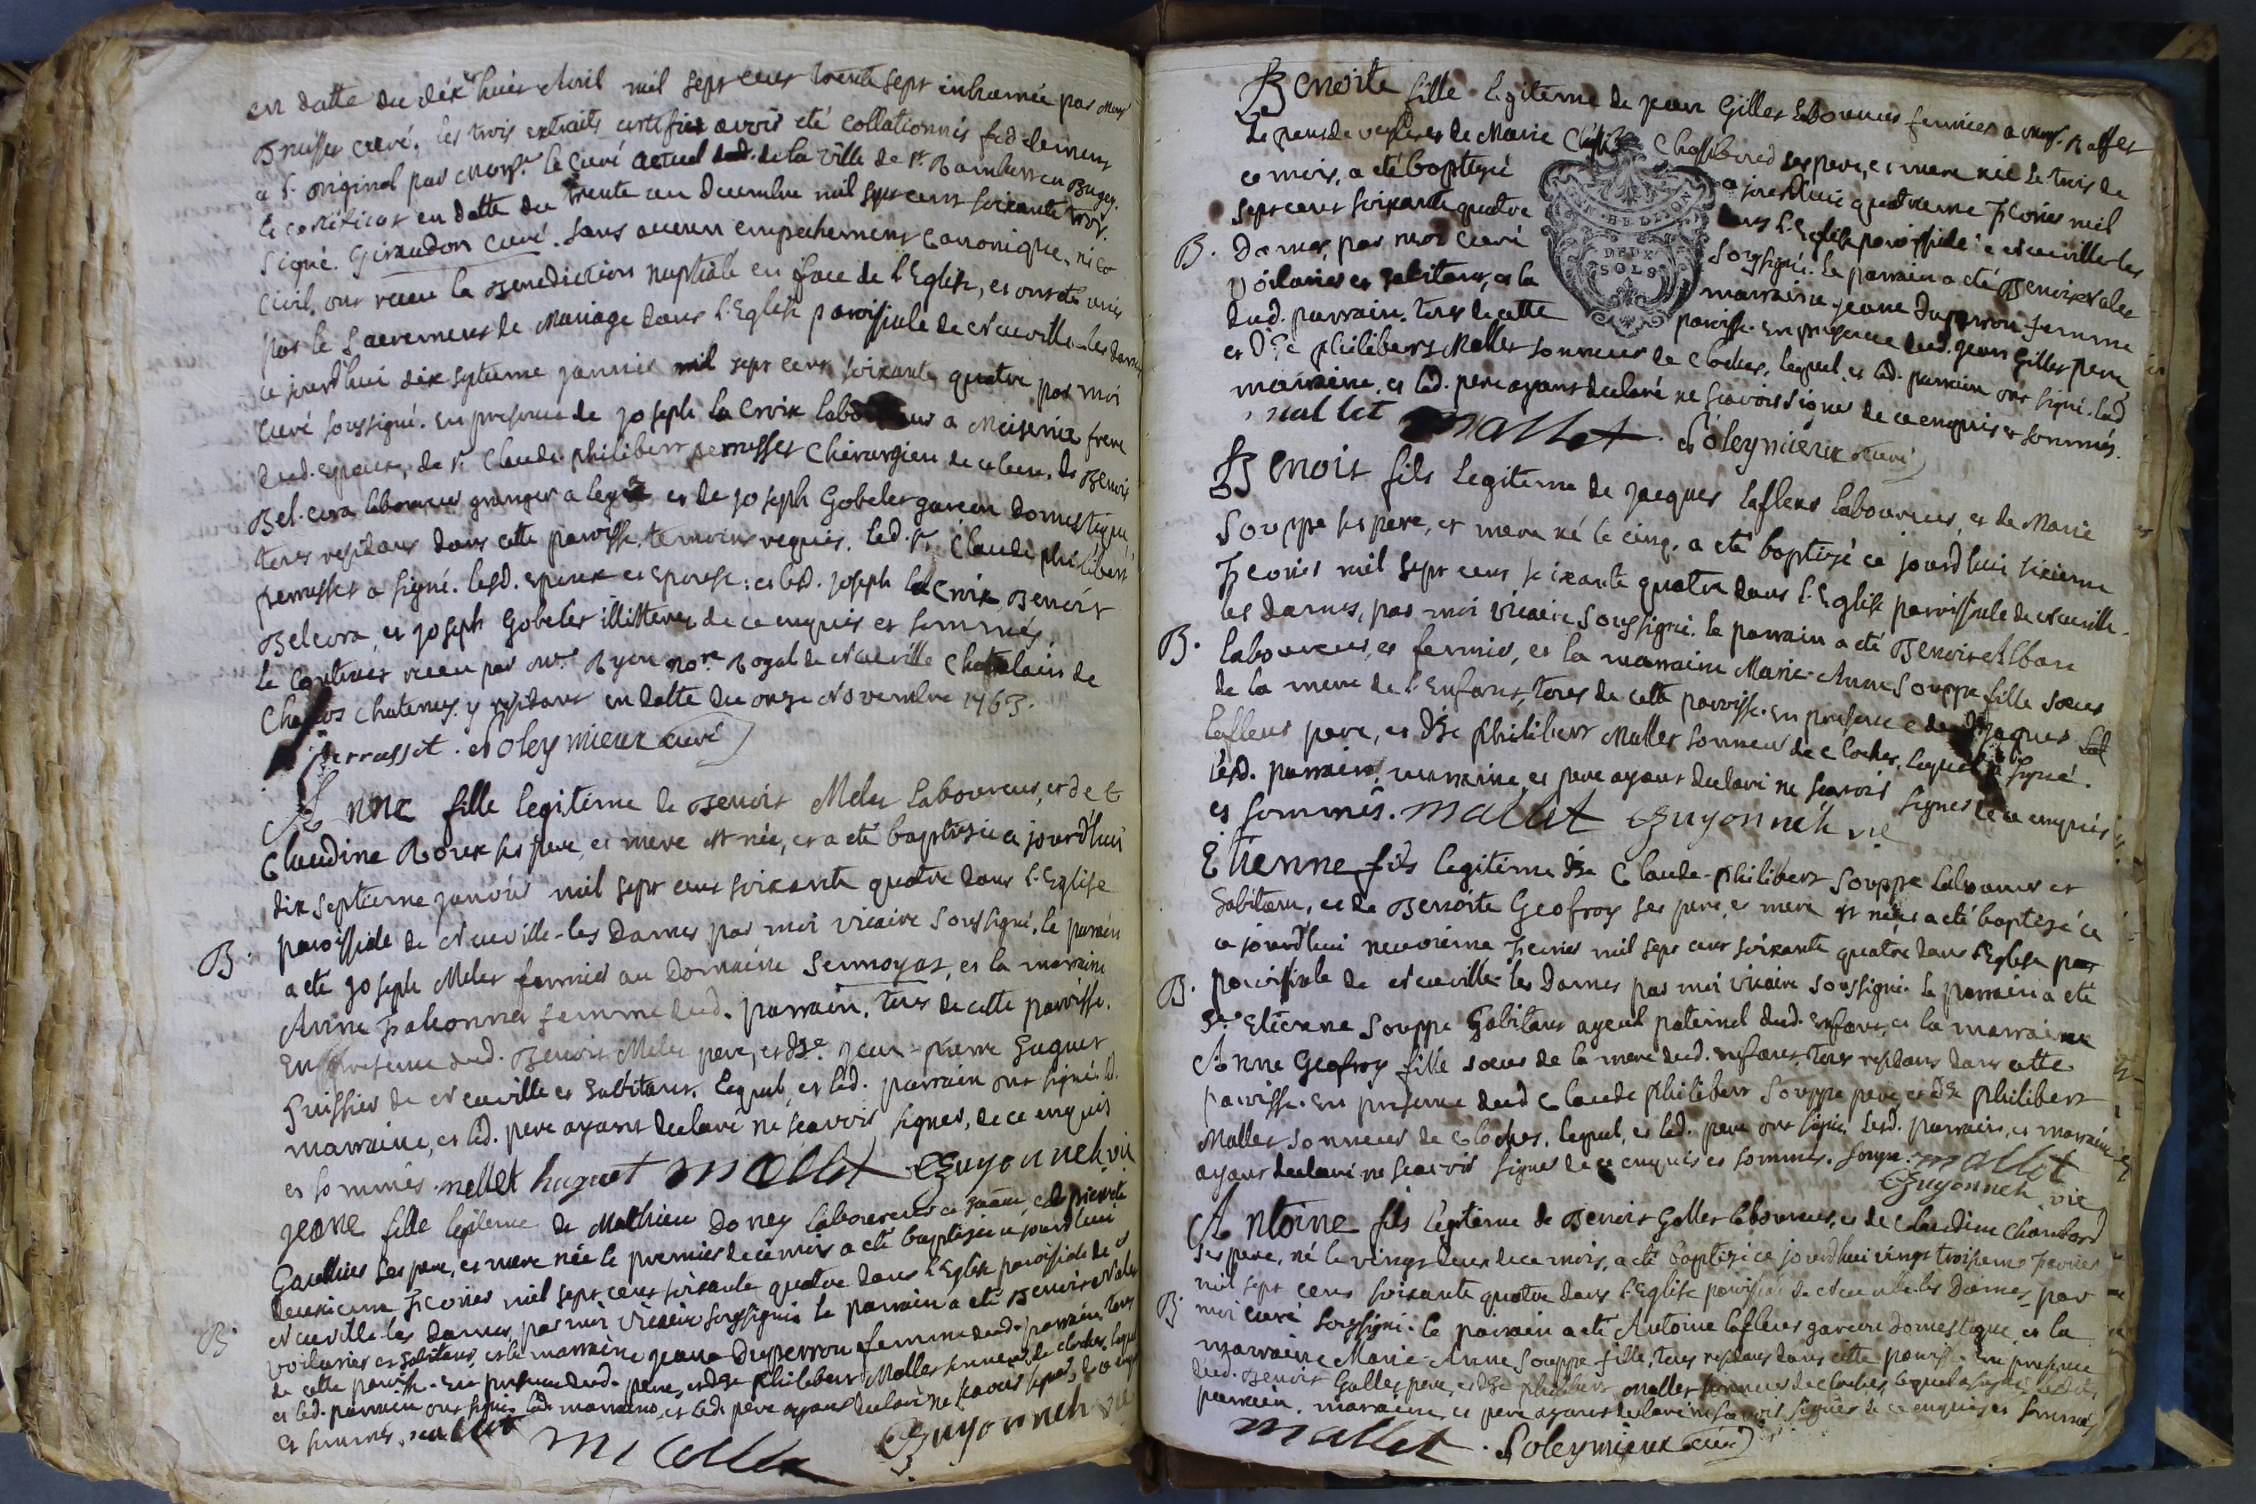 en datte du dix huit Avril mil sept cens trente sept inhumée par Monsr
curé. les trois extraits certifiés avoir été collationnés fidelement
a l'original par Monsr. le curé actuel dud. de la ville de St. Rambert en Bugey.
le certificat en datte du trente un Decembre mil sept cens soixante trois.
signé. Giraudon curé. sans aucun empechement canonique, ni
civil, ont receu la Benediction nuptiale en face de l'Eglise, et ont été unis
par le Sacrement de Mariage dans l'Eglise paroissiale de Neuville-les dames
ce jourd'hui dix septieme janvier mil sept cens soixante quatre par moi
curé soussigné. En presence de joseph la Croix laboureur a Meiseria frere
dud. epoux, de Sr. Claude philibert perrusset chirurgien de ce lieu, de Benoit
Belcour laboureur granger a et de joseph Gobelet garcon domestique
tous residans dans cette paroisse, temoins requis. led. Sr. Claude philibert
perrusset a signé. lesd. epoux et epouse: et led. joseph la Croix Benoit
et joseph Gobelet illitterés de ce enquis et sommés.
le contract receu par Me. Ryon nore. Royal de Neuville chatelain de
chatenay y residant en datte du onze Novembre 1763.
perrusset . Soleymieux curé
Anne fille legitime de Benoit Melet laboureur, et de
Claudine Roux ses pere, et mere est née, et a eté baptisée ce jourd'hui
dix septieme janvier mil sept cens soixante quatre dans l'Eglise
B. paroissiale de Neuville-les Dames par moi vicaire soussigné. le parrain
a eté joseph Melet fermier au Domaine Sermoyas, et la marraine
Anne femme dud. parrain, tous de cette paroisse.
En presence dud. Benoit Melet pere, et de jean-pierre huguet
huissier de Neuville et habitant. lequel, et led. parrain ont signé. la
marraine, et led. pere ayant declaré ne scavoir signer, de ce enquis
et sommés. mellet huguet mallet Guyonneh vic
jeane fille legitime de Mathieu Doney laboureur et de pierrete
Gauthier ses pere, et mere née le premier de ce mois a eté baptisée ce jourd'hui
deuxieme Fevrier mil sept cens soixante quatre dans l'Eglise paroissiale de
B. Neuville-les Dames, par moi vicaire soussigné. le parrain a eté Benoit Nalet
voiturier et habitant, et la marraine jeane Duperron femme dud. parrain, tous
de cette paroisse. En presence dud. pere, et de philibert Mallet sonneur de cloches, lequel
et led. parrain ont signé. lad. marraine, et led. pere ayant declaré ne scavoir signer, de ce enquis
et sommés. nallet mallet Guyonneh vic
Benoite fille legitime de jean Gillet laboureur fermier a Monsr.
de et de Marie ses pere, et mere née le trois de
ce mois, a eté baptisée ce jourd'hui quatrieme Fevrier mil
sept cens soixante quatre dans l'Eglise paroissiale de Neuville les
B. Dames, par moi curé soussigné. le parrain a eté Benoit Nalet
voiturier et habitant, et la marraine jeane Duperron femme
dud. parrain. tous de cette paroisse. En presence dud. jean Gillet pere,
et de philibert Mallet sonneur de cloches, lequel, et led. parrain ont signé. lad.
marraine, et led. pere ayant declaré ne scavoir signer de ce enquis et sommés.
nallet mallet . Soleymieux curé
DEUX
SOLS
Benoit fils legitime de jacques lafleur laboureur, et de Marie
Souppe ses pere, et mere né le cinq. a eté baptizé ce jourd'hui sixieme
Fevrier mil sept cens soixante quatre dans l'Eglise paroissiale de Neuville-
les Dames, par moi vicaire soussigné. le parrain a eté Benoit Alban
B. laboureur, et fermier, et la marraine Marie-Anne Souppe fille soeur
de la mere de l'enfant, tous de cette paroisse. En presence de jaques
lafleur pere, et de philibert Mallet sonneur de cloches, lequel a signé.
lesd. parrain, marraine, et pere ayant declaré ne scavoir signer de ce enquis
et sommés. mallet Guyonneh vic
Etienne fils legitime de Claude-philibert Souppe laboureur et
habitant, et de Benoite Geofroy ses pere, et mere est né et a eté baptizé ce
ce jourd'hui neuvieme Fevrier mil sept cens soixante quatre dans l'Eglise par
B. paroissiale de Neuville-les Dames par moi vicaire soussigné. le parrain a eté
Etienne Souppe habitant ayeul paternel dud. enfant, et la marraine
Anne Geofroy fille soeur de la mere dud. enfant, tous residans dans cette
paroisse. En presence dud. Claude philibert Souppe pere, et de philibert
Mallet sonneur de cloches. lequel, et led. pere ont signé. lesd. parrain, et marraine
ayant declaré ne scavoir signer de ce enquis et sommés. soupe. mallet
Guyonneh vic
Antoine fils legitime de Benoit Gallet laboureur, et de Claudine Chambard
ses pere, né le vingt deux de ce mois, a eté baptizé ce jourd'hui vingt troisieme Fevrier
mil sept cens soixante quatre dans l'Eglise paroissiale de Neuville les Dames, par
B. moi curé soussigné. le parrain a eté Antoine lafleur garcon domestique, et la
marraine Marie-Anne Souppe fille, tous residans dans cette paroisse. En presence
dud. Benoit Gallet pere, et de philibert Mallet sonneur de cloches, lequel a signé. lesd.
parrain, marraine, et pere ayant declaré ne scavoir signer de ce enquis et sommés
mallet . Soleymieux curé